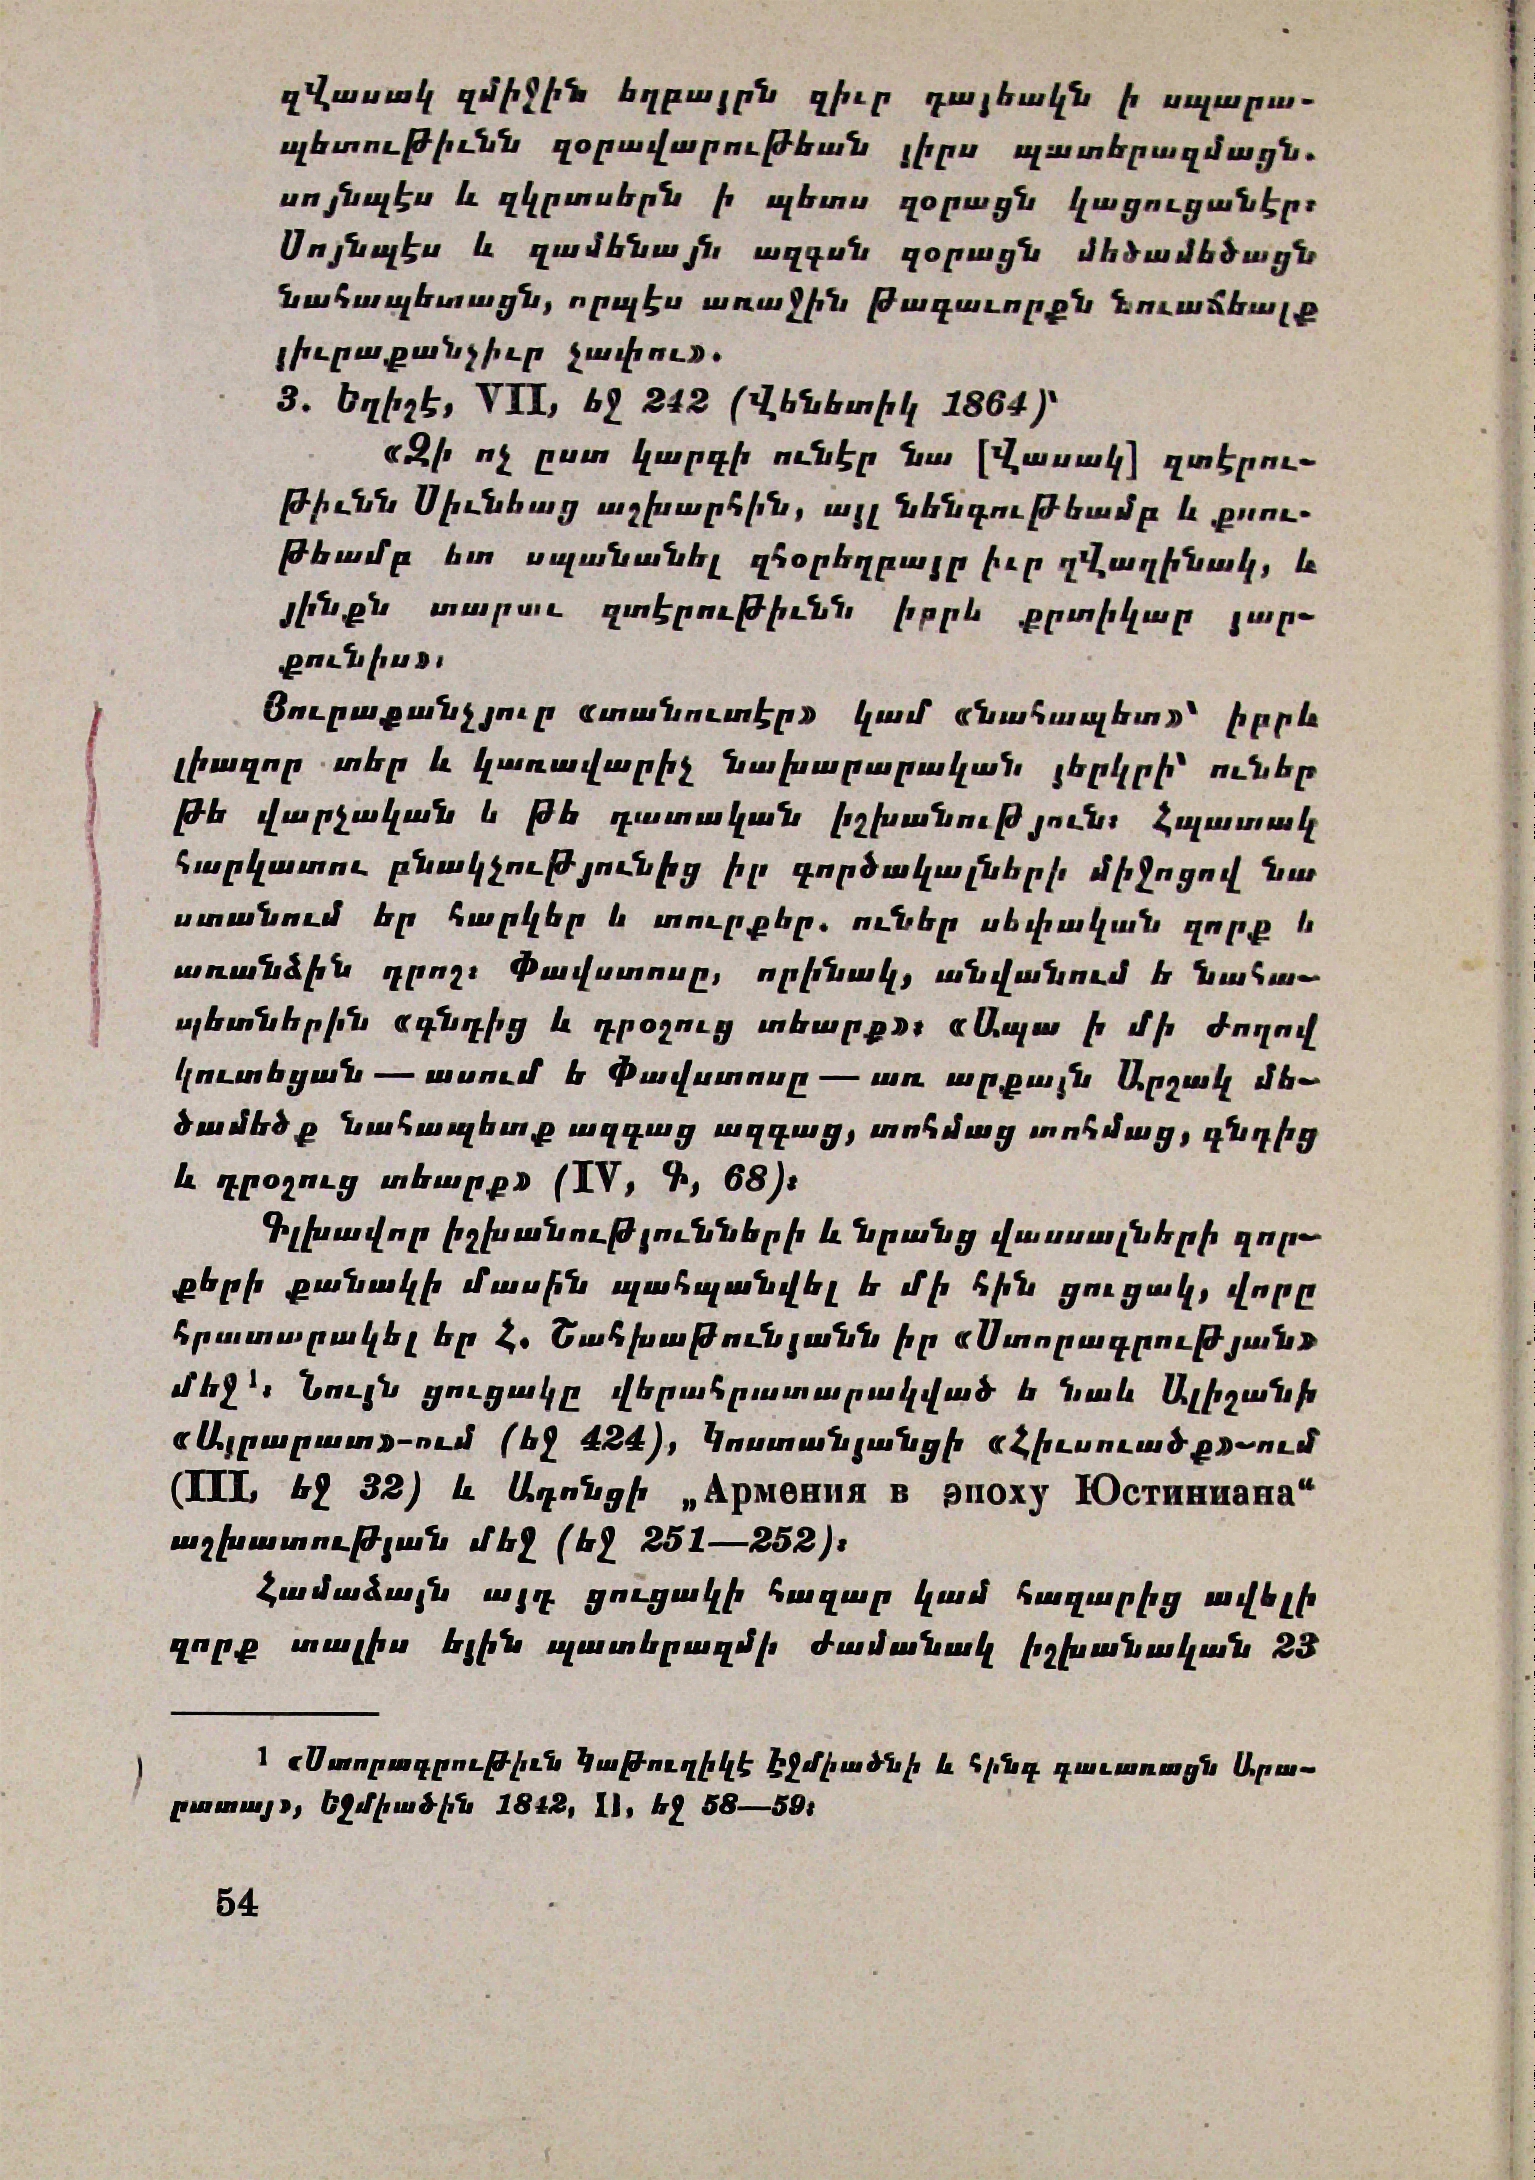 զՎասակ զմիջին եղբայրն զիւր դայեակն ի սպարա-
պետութիւնն զօրավարութեան յիրս պատերազմացն.
սոյնպէս և զկրտսերն ի պետս զօրացն կացուցանէր։
Սոյնպէս և զամենայն ազգսն զօրացն մեծամեծացն
նահապետացն, որպէս առաջին թագաւորքն նուաճեալք
յիւրաքանչիւր չափու».
3. Եղիշէ, VII, եջ 242 (Վենետիկ 1864)՝
«Զի ոչ ըստ կարգի ունէր նա [Վասակ] զտէրու-
թիւնն Սիւնեաց աշխարհին, այլ նենգութեամբ և քսու-
թեամբ ետ սպանանել զհօրեղբայր իւր զՎաղինակ, և
յինքն տարաւ զտէրութիւնն իբրև քրտիկար յար-
քունիս»։
Յուրաքանչյուր «տանուտէր» կամ «նահապետ»՝ իբրև
լիազոր տեր և կառավարիչ նախարարական յերկրի՝ ուներ
թե վարչական և թե դատական իշխանություն։ Հպատակ
հարկատու բնակչությունից իր գործակալների միջոցով նա
ստանում եր հարկեր և տուրքեր. ուներ սեփական զորք և
առանձին դրոշ։ Փավստոսը, որինակ, անվանում ե նահա-
պետներին «գնդից և դրօշուց տեարք»։ «Ապա ի մի ժողով
կուտեցան — ասում ե Փավստոսը — առ արքայն Արշակ մե-
ծամեծք նահապետք ազգաց ազգաց, տոհմաց տոհմաց, գնդից
և դրօշուց տեարք» (IV, Գ, 68)։
Գլխավոր իշխանությունների և նրանց վասսալների զոր-
քերի քանակի մասին պահպանվել ե մի հին ցուցակ, վորը
հրատարակել եր Հ. Շահխաթունյանն իր «Ստորագրության»
մեջ¹։ Նույն ցուցակը վերահրատարակված ե նաև Ալիշանի
«Այրարատ»-ում (եջ 424), Կոստանյանցի «Հիւսուածք»-ում
(III, եջ 32) և Ադոնցի „Армения в эпоху Юстиниана“
աշխատության մեջ (եջ 251—252)։
Համաձայն այդ ցուցակի հազար կամ հազարից ավելի
զորք տալիս եյին պատերազմի ժամանակ իշխանական 23
¹ «Ստորագրութիւն Կաթուղիկէ Էջմիածնի և հինգ գաւառացն Արա-
րատայ», Եջմիածին 1842, II, եջ 58—59։
54